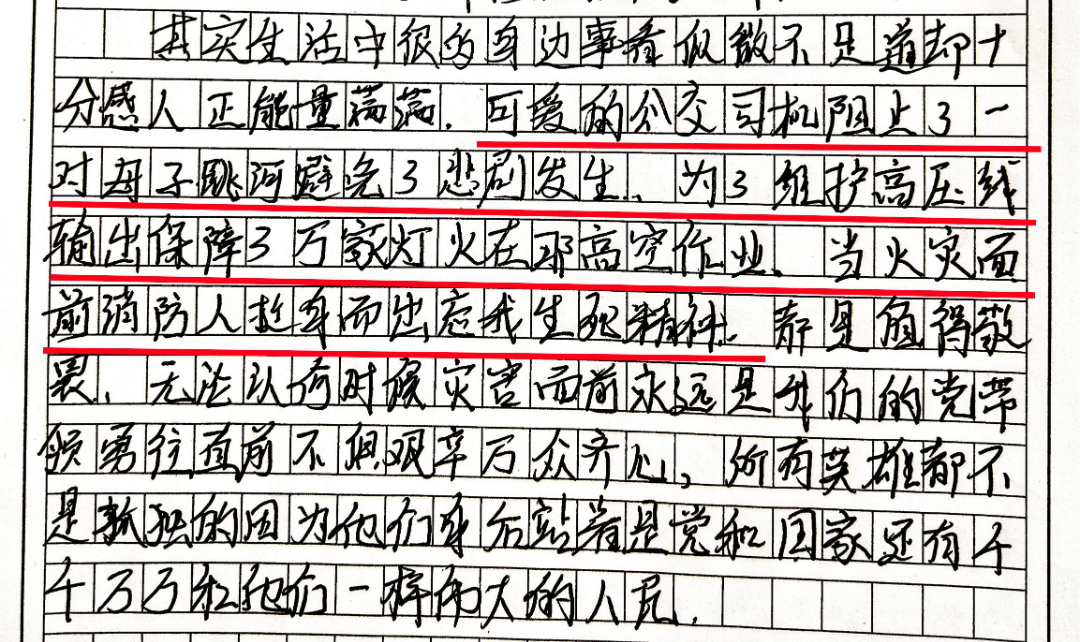 其实生活中很多身边事看似微不足道却十
分感人正能量满满. 可爱的公交司机阻止了一
对母子跳河避免了悲剧发生. 为了维护高压线
输出保障了万家灯火在那高空作业. 当火灾面
前消防人挺身而出忘我生死精神. 都是值得敬
畏. 无法认何时候灾害面前永远是我们的党带
领勇往直前不惧艰辛万众齐心, 所有英雄都不
是孤独的因为他们身后站着是党和国家还有千
千万万和他们一样伟大的人民.